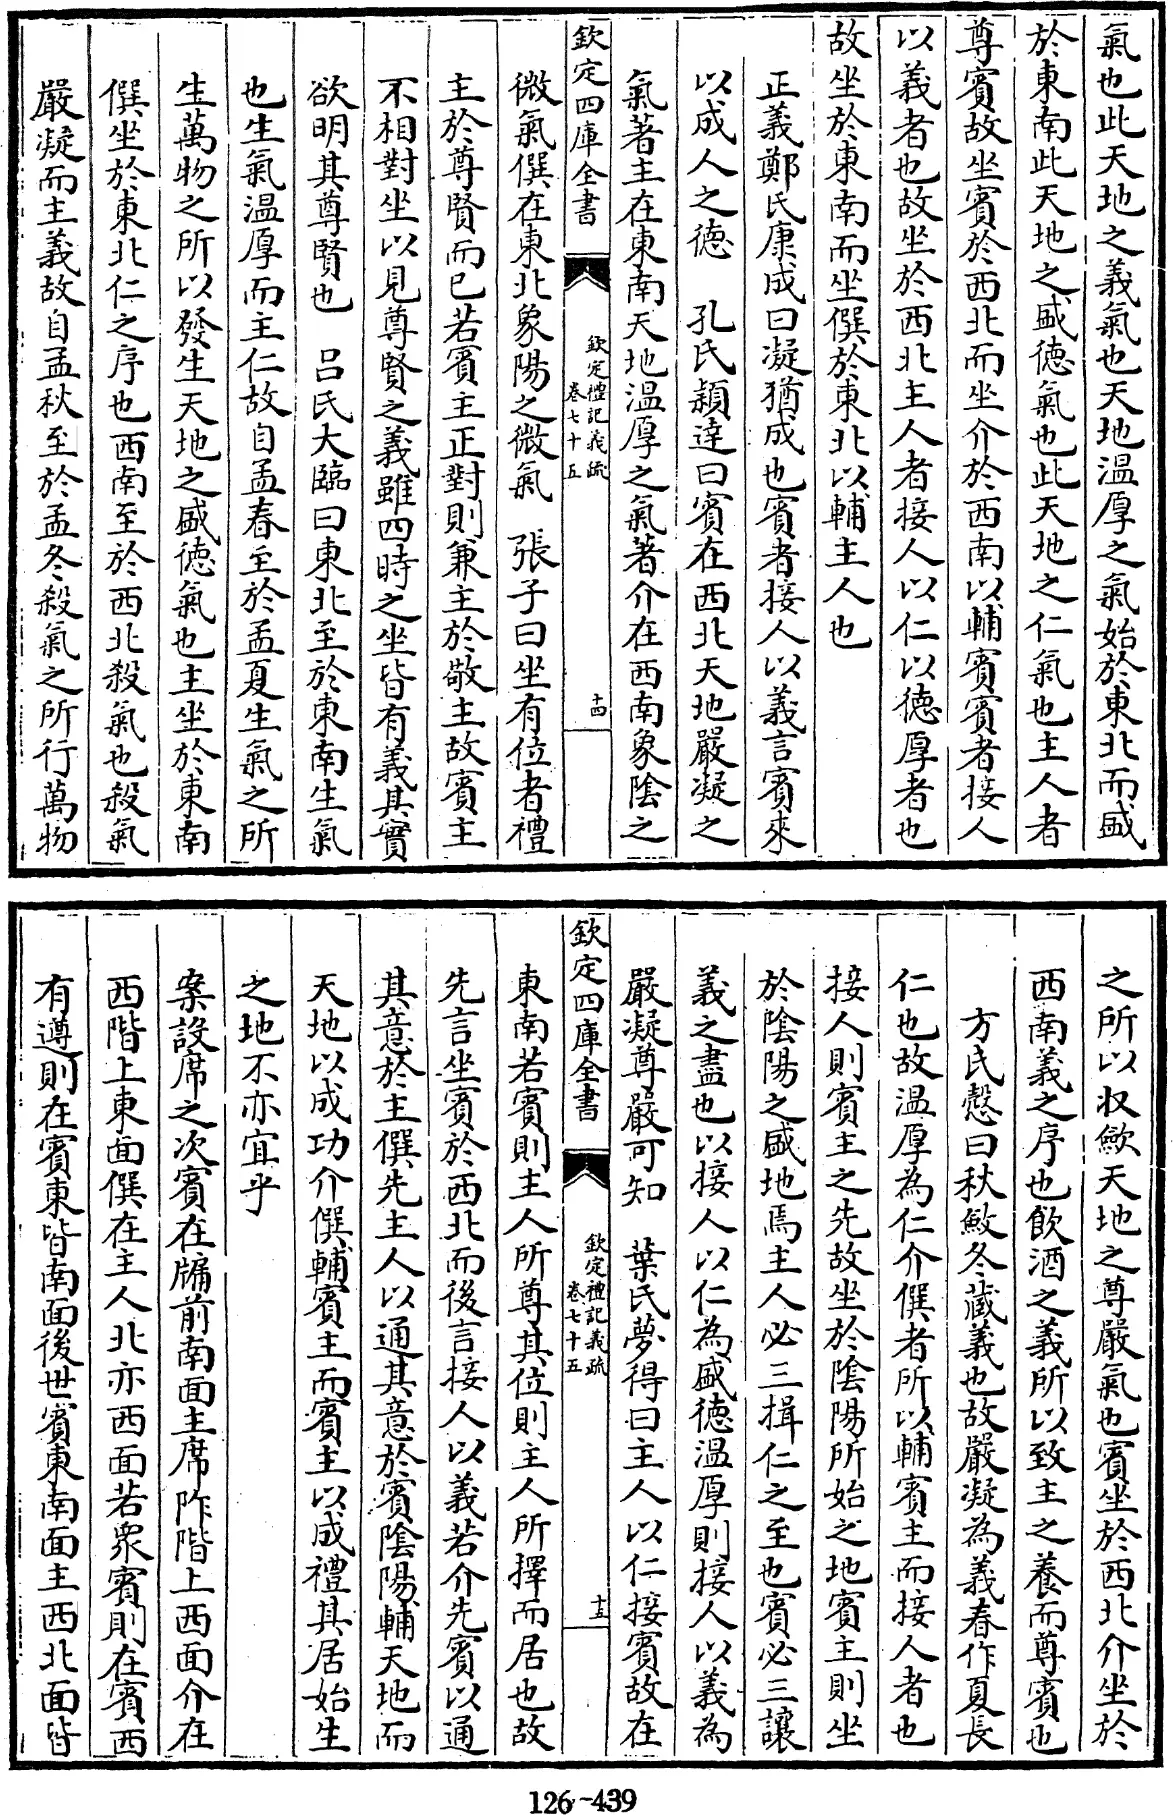 氣也此天地之義氣也天地溫厚之氣始於東北而盛
於東南此天地之盛德氣也此天地之仁氣也主人者
尊賓故坐賓於西北而坐介於西南以輔賓賓者接人
以義者也故坐於西北主人者接人以仁以德厚者也
故坐於東南而坐僎於東北以輔主人也
正義鄭氏康成曰凝猶成也賓者接人以義言賓來
以成人之德 孔氏穎達曰賓在西北天地嚴凝之
氣著主在東南天地溫厚之氣著介在西南象陰之
欽定四庫全書
欽定禮記義疏
卷七十五
十四
微氣僎在東北象陽之微氣 張子曰坐有位者禮
主於尊賢而已若賓主正對則兼主於敬主故賓主
不相對坐以見尊賢之義雖四時之坐皆有義其實
欲明其尊賢也 呂氏大臨曰東北至於東南生氣
也生氣溫厚而主仁故自孟春至於孟夏生氣之所
生萬物之所以發生天地之盛德氣也主坐於東南
僎坐於東北仁之序也西南至於西北殺氣也殺氣
嚴凝而主義故自孟秋至於孟冬殺氣之所行萬物
之所以收歛天地之尊嚴氣也賓坐於西北介坐於
西南義之序也飲酒之義所以致主之養而尊賓也
方氏慤曰秋斂冬藏義也故嚴凝為義春作夏長
仁也故温厚為仁介僎者所以輔賓主而接人者也
接人則賓主之先故坐於陰陽所始之地賓主則坐
於陰陽之盛地焉主人必三揖仁之至也賓必三讓
義之盡也以接人以仁為盛德溫厚則接人以義為
嚴凝尊嚴可知 葉氏夢得曰主人以仁接賓故在
欽定四庫全書
欽定禮記義疏
卷七十五
十五
東南若賓則主人所尊其位則主人所擇而居也故
先言坐賓於西北而後言接人以義若介先賓以通
其意於主僎先主人以通其意於賓陰陽輔天地而
天地以成功介僎輔賓主而賓主以成禮其居始生
之地不亦宜乎
案設席之次賓在牖前南面主席阼階上西面介在
西階上東面僎在主人北亦西面若衆賓則在賓西
有遵則在賓東皆南面後世賓東南面主西北面皆
126-439